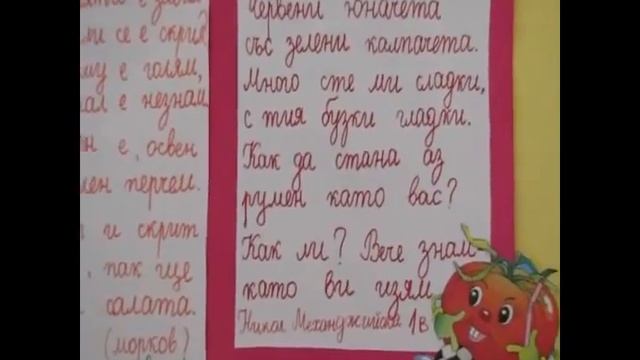 е
ми се е скрил
е голям,
е незнам
е, освен
перчем.
и скрит
пак ще
салата.
(морков)
червени юначета
със зелени калпачета.
Много сте ми сладки,
с тия бузки гладки.
Как да стана аз
румен като вас?
Как ли? Вече знам
като ви изям
1в